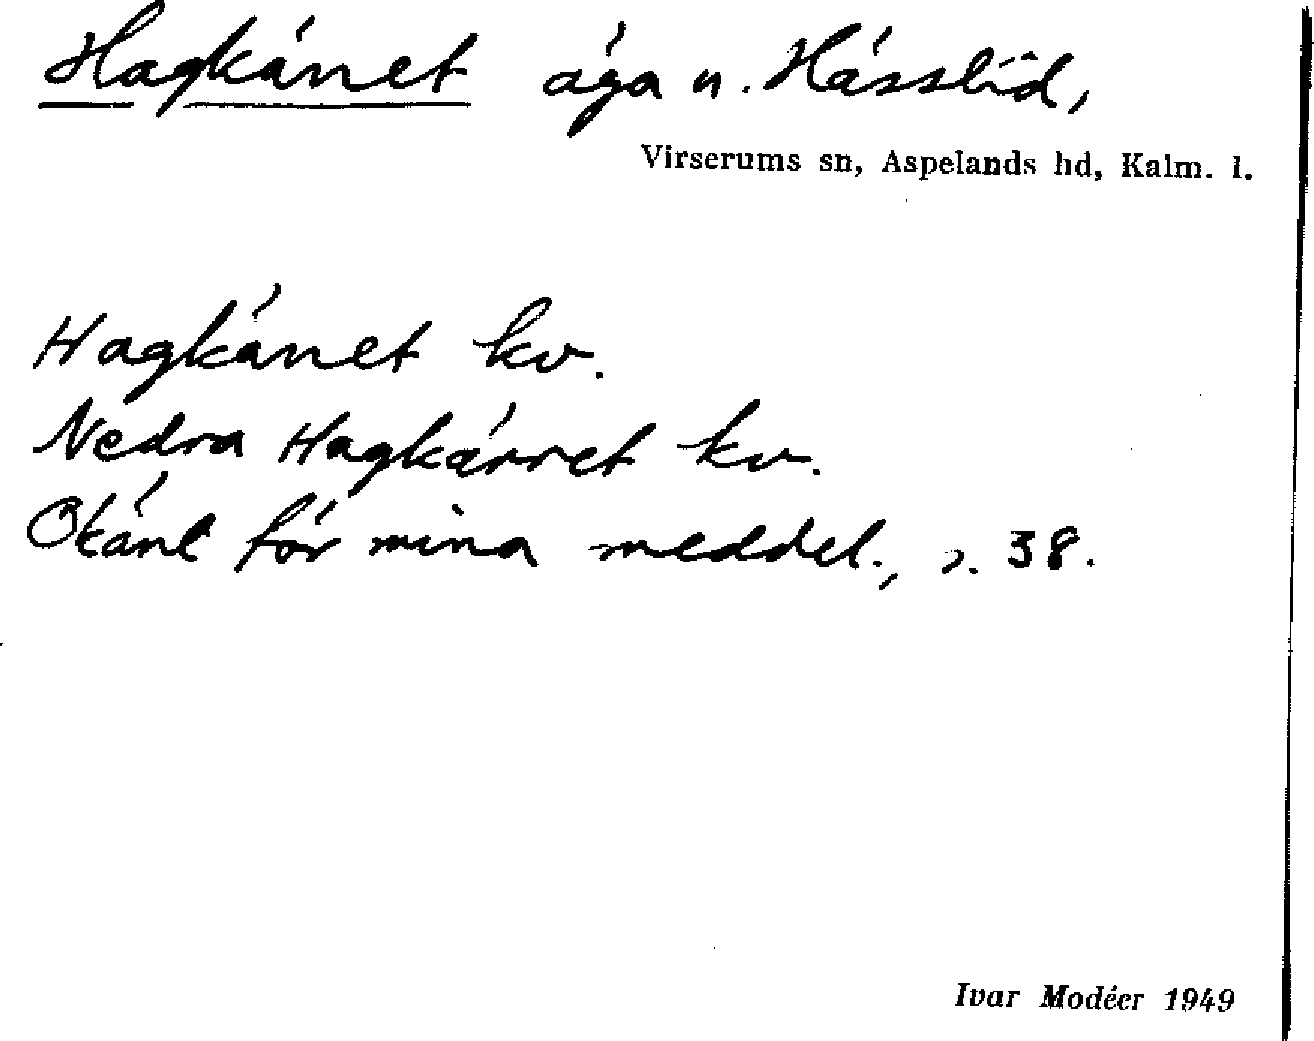 Hagkärret äga u. Hässlid,
Virserums sn, Aspelands hd, Kalm. l.
Hagkärret kv.
Nedra Hagkärret kv.
Okänt för mina meddel., s. 38.
Ivar Modéer 1949